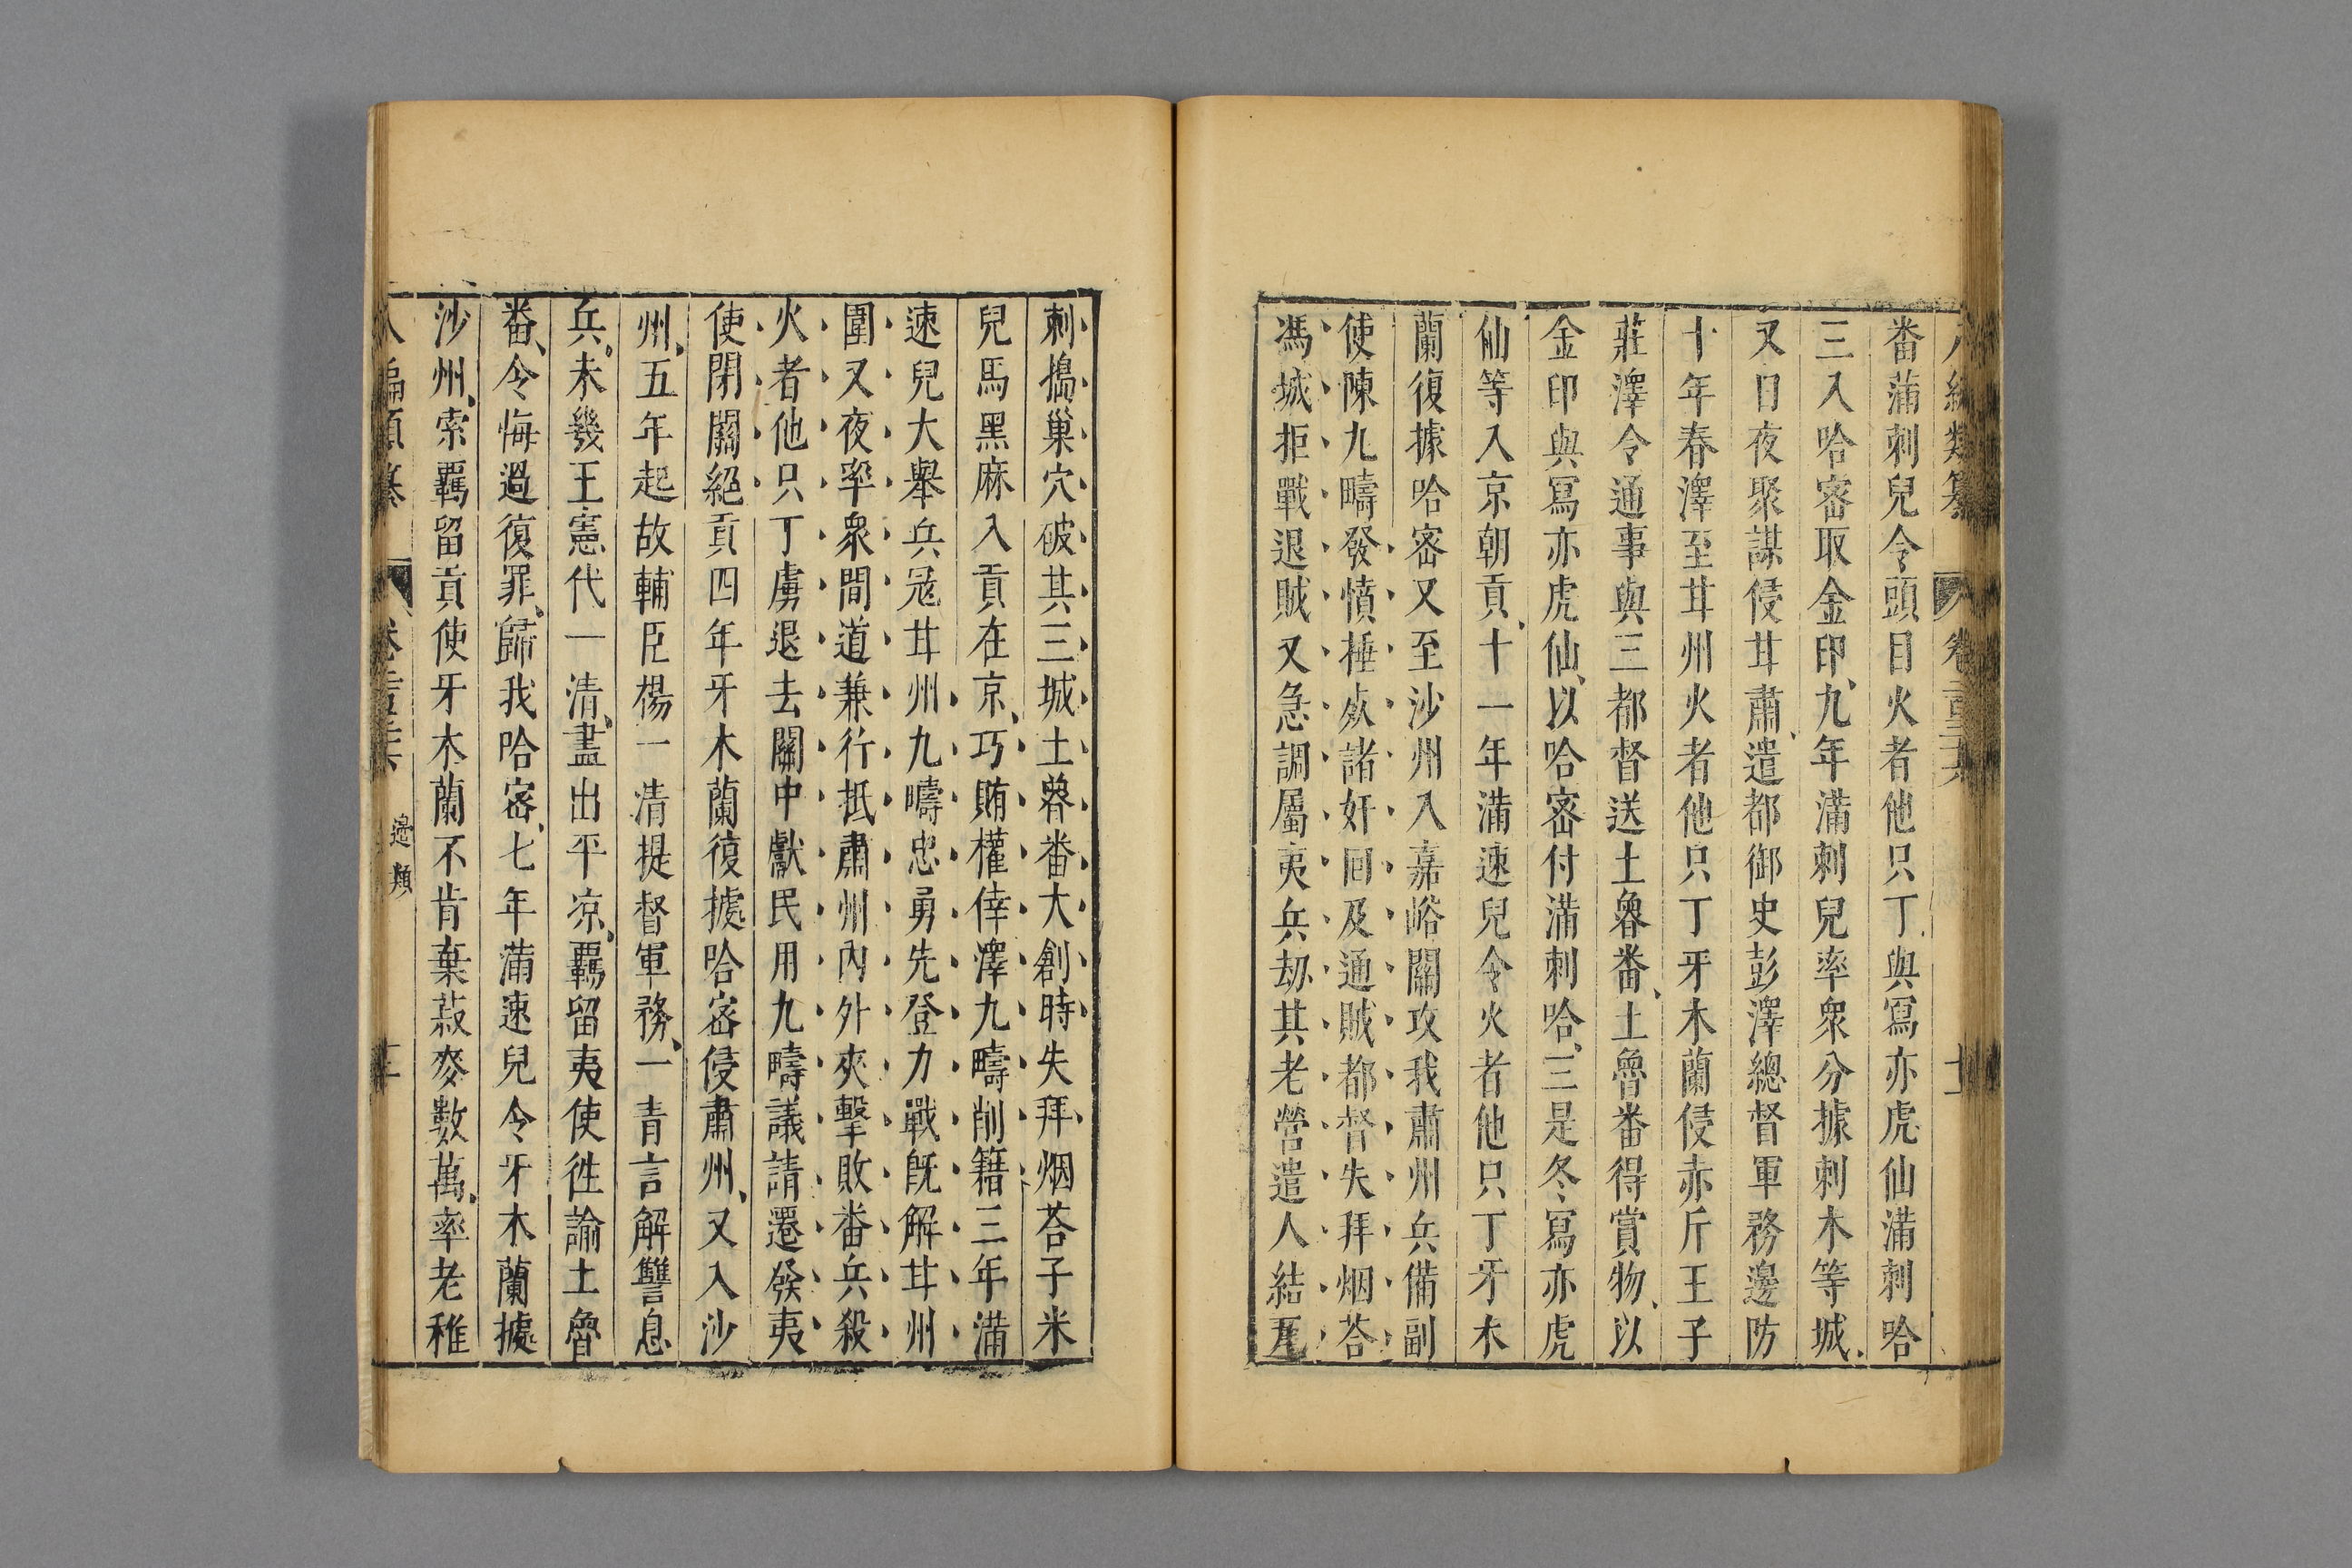 番蒲刺兒令頭目火者他只丁與冩亦虎仙滿刺哈
三入哈宻取金印九年滿刺兒率衆分據刺木等城
又日夜聚謀侵甘肅遣都御史彭澤總督軍務邊防
十年春澤至甘州火者他只丁牙木蘭侵赤斤王子
莊澤令通事與三都督送土魯番土魯番得賞物以
金印與冩亦虎仙以哈宻付滿刺哈三是冬冩亦虎
仙等入京朝貢十一年滿速兒令火者他只丁牙木
蘭復據哈宻又至沙州入嘉峪關攻我肅州兵備副
使陳九疇發憤捶死諸奸回及通賊都督失拜烟荅
馮城拒戰退賊又急調屬夷兵刼其老營遣人結瓦
刺搗巢穴破其三城土魯番大創時失拜烟荅子米
兒馬黑麻入貢在京巧賄權倖澤九疇削籍三年滿
速兒大舉兵冦甘州九疇忠勇先登力戰既解甘州
圍又夜率衆間道兼行抵肅州內外夾擊敗番兵殺
火者他只丁虜退去關中獻民用九疇議請遷發夷
使閉關絕貢四年牙木蘭復據哈宻侵肅州又入沙
州五年起故輔臣楊一清提督軍務一青言解讐息
兵未幾王憲代一清盡出平凉羈留夷使徃諭土魯
番令悔過復罪歸我哈宻七年滿速兒令牙木蘭據
沙州索羈留貢使牙木蘭不肯棄菽麥數萬率老稚
邉類